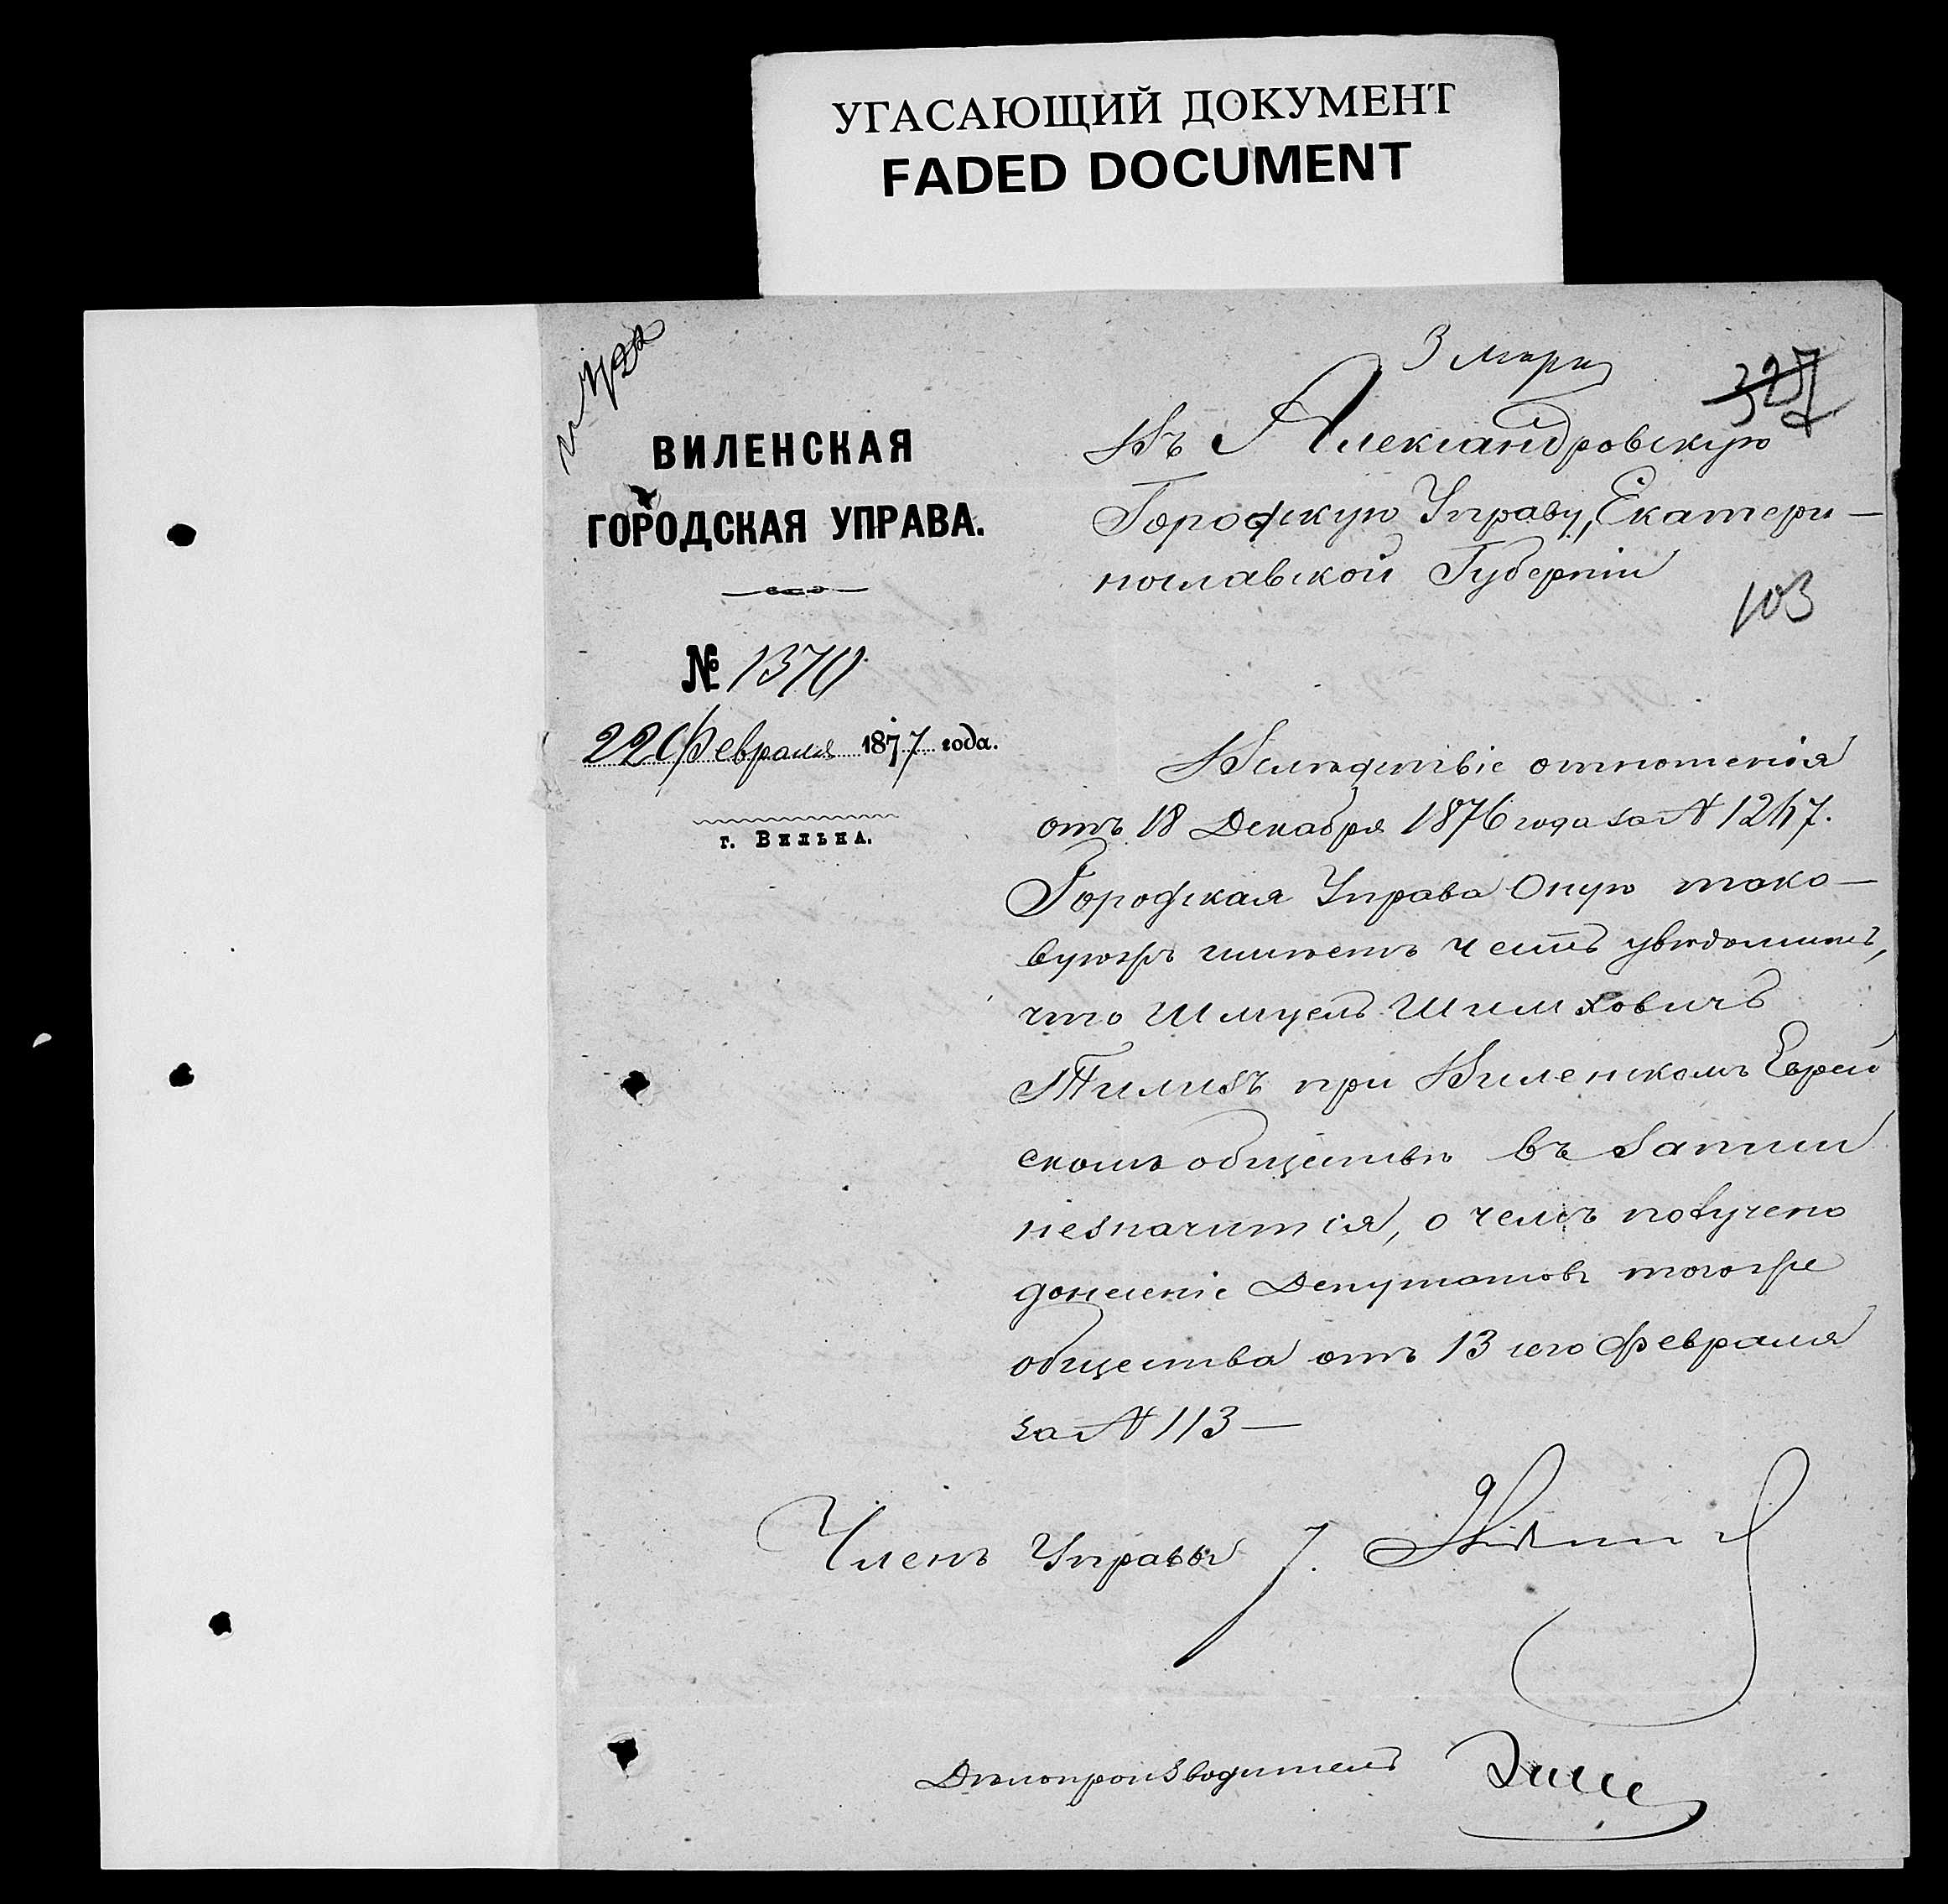 УГАСАЮЩИЙ ДОКУМЕНТ
FADED DOCUMENT
3 марта
327
ВИЛЕНСКАЯ
ГОРОДСКАЯ УПРАВА.
№ 1370
22 Февраля 1877 года.
г. Вильна.
Въ Александровскую
Городскую Управу, Екатери-
нославской Губерніи
103
Вслѣдствіе отношенія
отъ 18 Декабря 1876 года за № 1247.
Городская Управа Оную тако-
вуюжъ имѣетъ честь увѣдомить,
что Шмуель Шимховичъ
при Виленскомъ Еврей
скомъ обществѣ въ записи
незначится, о чемъ получено
донесеніе Депутатовъ тогоже
общества отъ 13 сего Февраля
за № 113 —
Членъ Управы
Дѣлопроизводитель